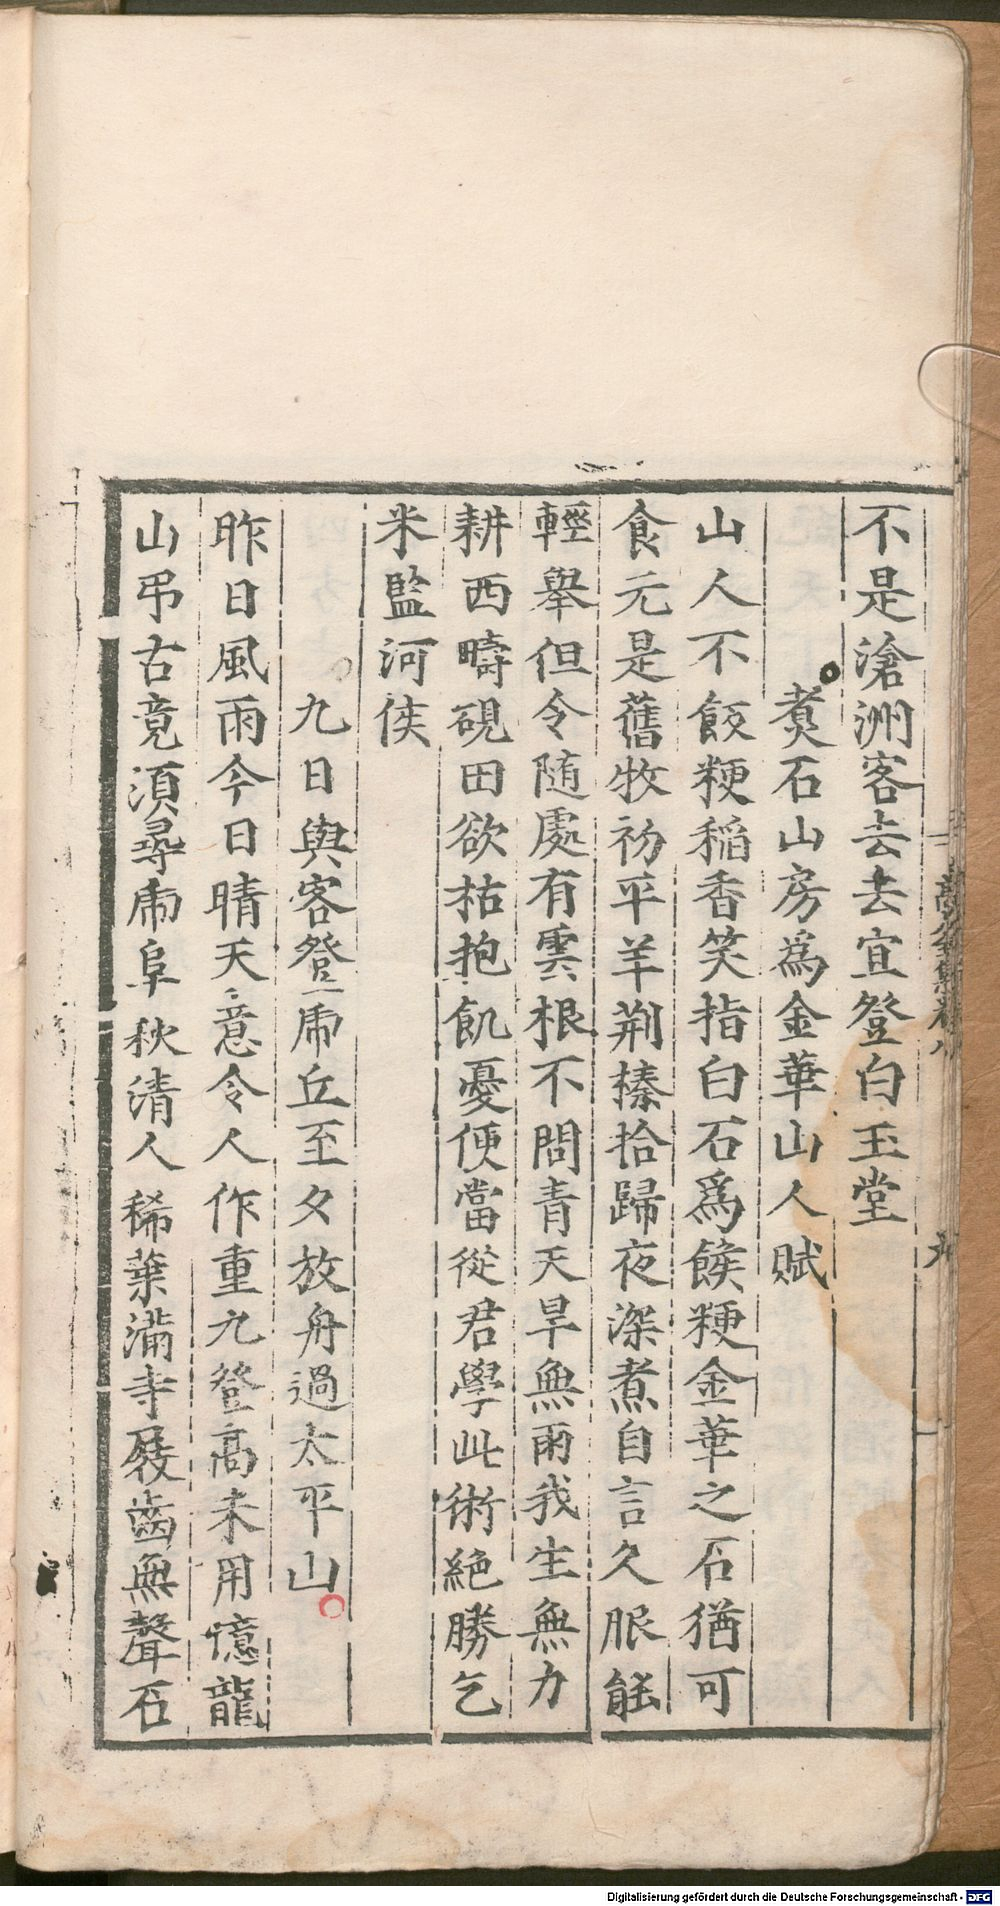 不是滄洲客去去宜登白玉堂
煑石山房爲金華山人賦
山人不飯粳稲香笑指白石爲餱粳金華之石猶可
食元是舊牧初平羊荆榛拾歸夜深煮自言久服能
輕舉但令随處有雲根不問青天旱無雨我生無力
耕西疇硯田欲枯抱飢憂便當從君學此術絶勝乞
米監河侯
九日與客登虎丘至夕放舟過太平山
昨日風雨今日晴天意令人作重九登高未用憶龍
山弔古竟須尋虎阜秋清人稀葉滿寺屐齒無聲石
Digitalisierung gefördert durch die Deutsche Forschungsgemeinschaft - DFG